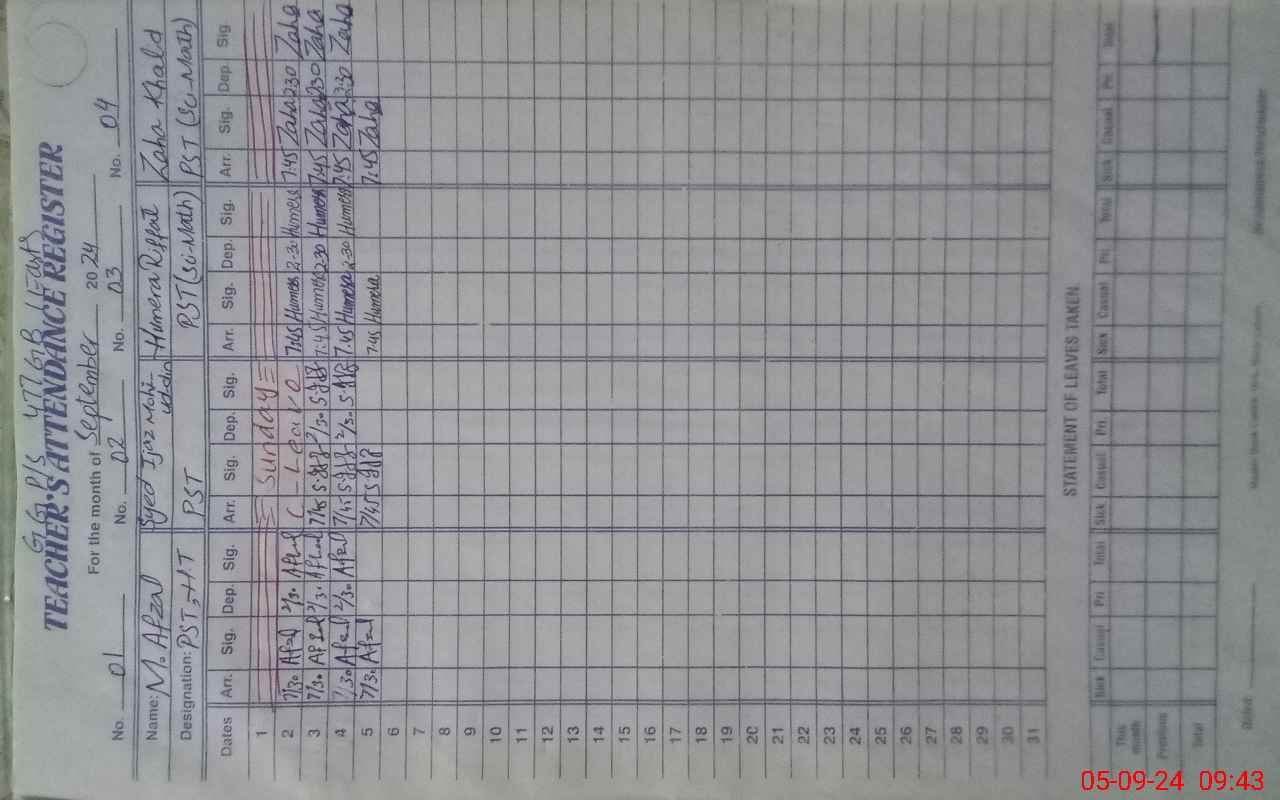 GG P/S 477 GB (East)
TEACHER'S ATTENDANCE REGISTER
For the month of September 2024
No. 01 No. 02 No. 03 No. 04
Name: M. Afzal Syed Ijaz Mohi-uddin Humera Riffat Zaha Khalid
Designation: PST, H.T PST PST (Sci-Math) PST (Sci-Math)
Dates Arr. Sig. Dep. Sig. Arr. Sig. Dep. Sig. Arr. Sig. Dep. Sig. Arr. Sig. Dep. Sig
1 Sunday
2 7/30 Afzal 2/30 Afzal C-Leave 7:45 Humera 2-30 Humera 7:45 Zaha 2:30 Zaha
3 7/30 Afzal 2/30 Afzal 7/45 2/30 7:45 Humera 2:30 Humera 7:45 Zaha 2:30 Zaha
4 7/30 Afzal 2/30 Afzal 7/45 2/30 7:45 Humera 2:30 Humera 7:45 Zaha 2:30 Zaha
5 7/30 Afzal 7/45 7:45 Humera 7:45 Zaha
6
7
8
9
10
11
12
13
14
15
16
17
18
19
20
21
22
23
24
25
26
27
28
29
30
31
STATEMENT OF LEAVES TAKEN
Sick Casual Pri Total Sick Casual Pri. Total Sick Casual Pri. Total Sick Casual Pri. Total
This month
Previous
Total
Dated
05-09-24 09:43